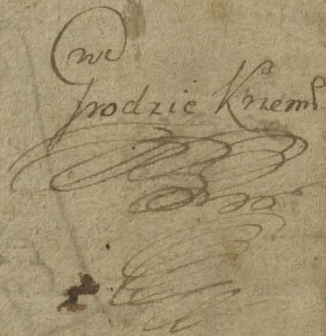 we
Grodzie Krzemẜ